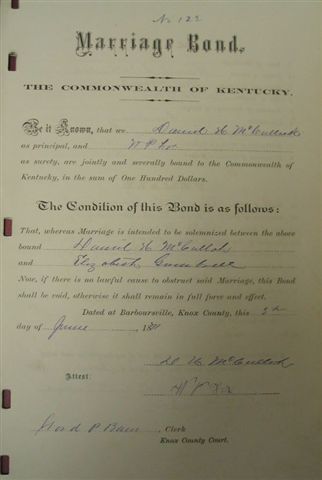 No 122
Marriage Bond.
THE COMMONWEALTH OF KENTUCKY.
Be it Known, that we Daniel H McCulloh
as principal, and
as surety, are jointly and severally bound to the Commonwealth of
Kentucky, in the sum of One Hundred Dollars.
The Condition of this Bond is as follows:
That, whereas Marriage is intended to be solemnized between the above
bound Daniel H McCulloh
and Elizabeth
Now, if there is no lawful cause to obstruct said Marriage, this Bond
shall be void, otherwise it shall remain in full force and effect.
Dated at Barboursville, Knox County, this
day of June , 18
D H McCulloh
Attest:
, Clerk
Knox County Court.